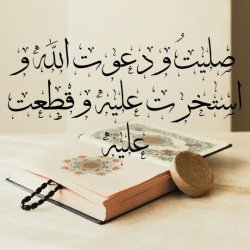 صليتُ و دعوت اللَّه و
استخرت عليهْ و قطعت
عليهْ